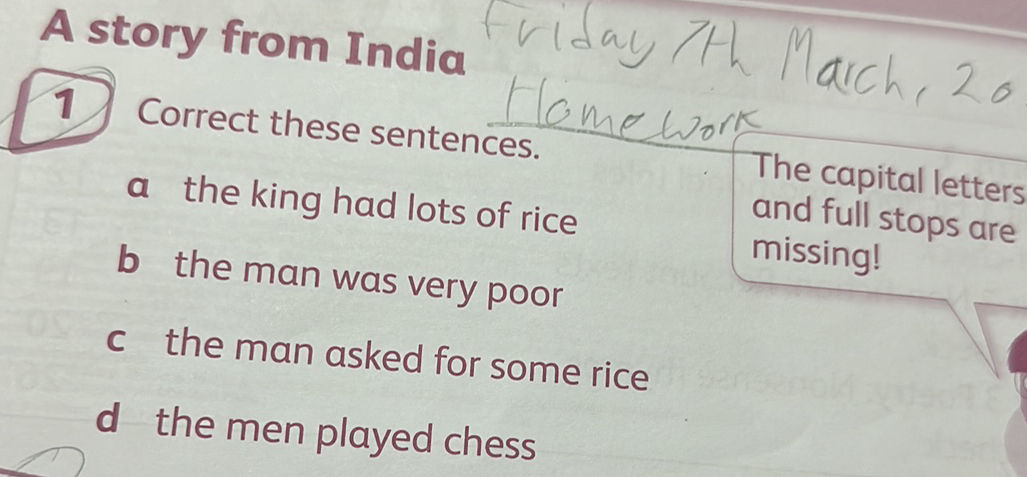 A story from India
Friday 7th March, 20
Homework
1 Correct these sentences.
a the king had lots of rice
b the man was very poor
c the man asked for some rice
d the men played chess
The capital letters
and full stops are
missing!